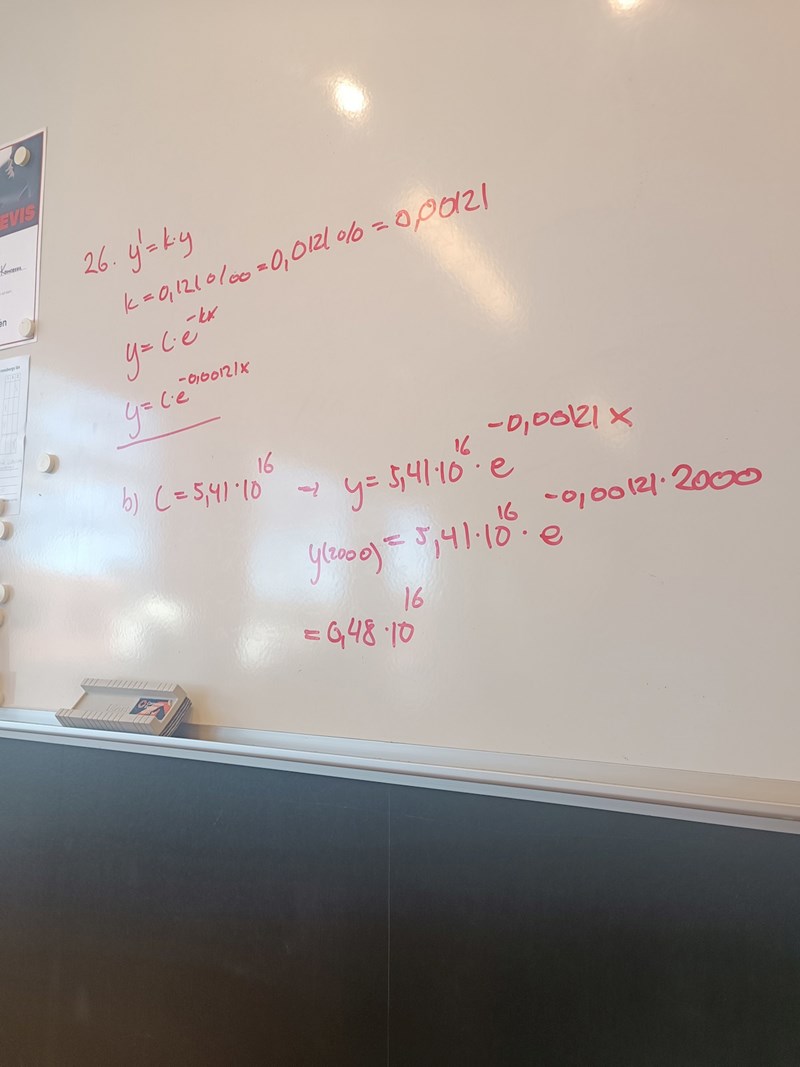 EVIS
en
26. y' = k·y
k = 0,121 ‰ = 0,0121 % = 0,00121
y = C·e^-kx
y = C·e^-0,00121x
b) C = 5,41·10^16 → y = 5,41·10^16 · e^-0,00121x
y(2000) = 5,41·10^16 · e^-0,00121·2000
= 0,48·10^16